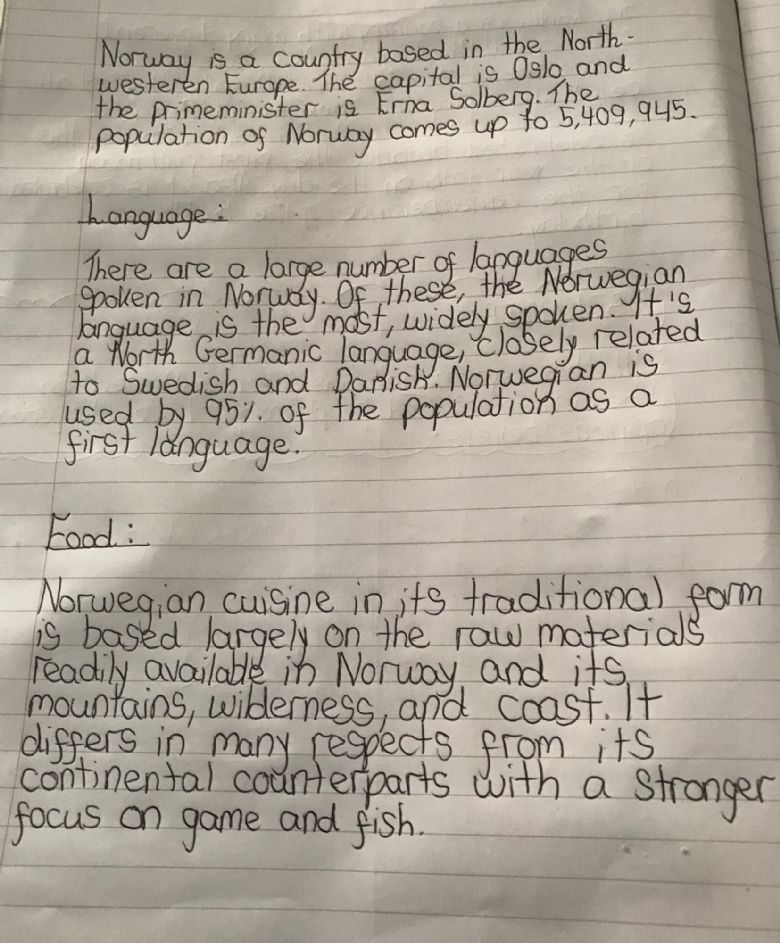 Norway is a country based in the North-
westeren Europe. The capital is Oslo and
the primeminister is Erna Solberg. The
population of Norway comes up to 5,409,945.
Language:
There are a large number of languages
spoken in Norway. Of these, the Norwegian
language is the most, widely spoken. It's
a North Germanic language, closely related
to Swedish and Danish. Norwegian is
used by 95% of the population as a
first language.
Food:
Norwegian cuisine in its traditional form
is based largely on the raw materials
readily available in Norway and its
mountains, wilderness, and coast. It
differs in many respects from its
continental counterparts with a stronger
focus on game and fish.